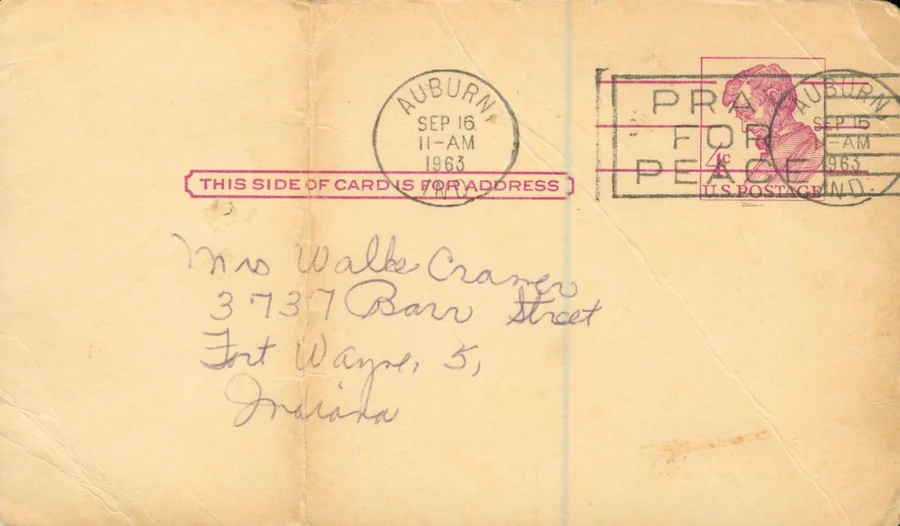 AUBURN,
SEP 16
11-AM
1963
IND.
PRAY
FOR
PEACE
AUBURN
SEP 16
11-AM
1963
IND.
4c
U.S. POSTAGE
THIS SIDE OF CARD IS FOR ADDRESS
Mrs Cramer
3737 Barr Street
Fort Wayne, 5,
Indiana